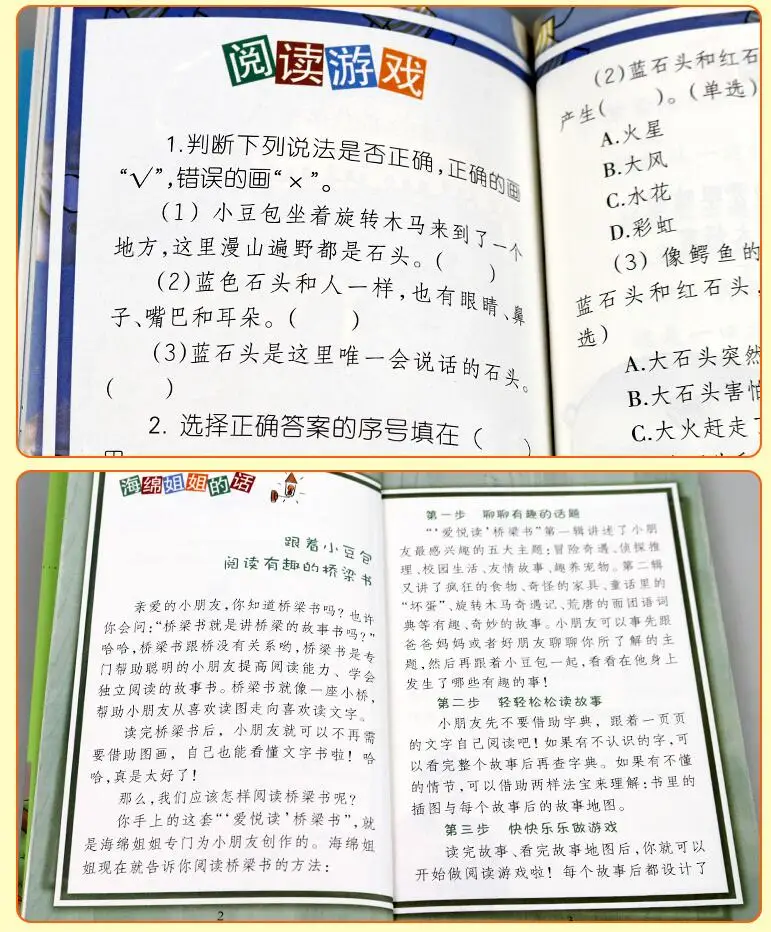 阅读游戏
1.判断下列说法是否正确,正确的画
“√”,错误的画“×”。
(1) 小豆包坐着旋转木马来到了一个
地方,这里漫山遍野都是石头。(  )
(2)蓝色石头和人一样,也有眼睛、鼻
子、嘴巴和耳朵。(  )
(3)蓝石头是这里唯一会说话的石头。
(  )
2. 选择正确答案的序号填在(  )
(2)蓝石头和红石
产生(  )。(单选)
A.火星
B.大风
C.水花
D.彩虹
(3) 像鳄鱼的
蓝石头和红石头,
选)
A.大石头突然
B.大石头害怕
C.大火赶走了
海绵姐姐的话
跟着小豆包
阅读有趣的桥梁书
亲爱的小朋友,你知道桥梁书吗? 也许
你会问:“桥梁书就是讲桥梁的故事书吗?”
哈哈,桥梁书跟桥没有关系哟,桥梁书是专
门帮助聪明的小朋友提高阅读能力、学会
独立阅读的故事书。桥梁书就像一座小桥,
帮助小朋友从喜欢读图走向喜欢读文字。
读完桥梁书后,小朋友就可以不再需
要借助图画,自己也能看懂文字书啦! 哈
哈,真是太好了!
那么,我们应该怎样阅读桥梁书呢?
你手上的这套“‘爱悦读’桥梁书”,就
是海绵姐姐专门为小朋友创作的。海绵姐
姐现在就告诉你阅读桥梁书的方法:
2
第一步 聊聊有趣的话题
“‘爱悦读’桥梁书”第一辑讲述了小朋
友最感兴趣的五大主题:冒险奇遇、侦探推
理、校园生活、友情故事、趣养宠物。第二辑
又讲了疯狂的食物、奇怪的家具、童话里的
“坏蛋”、旋转木马奇遇记、荒唐的面团语词
典等有趣、奇妙的故事。小朋友可以事先跟
爸爸妈妈或者好朋友聊聊你所了解的主
题,然后再跟着小豆包一起,看看在他身上
发生了哪些有趣的事!
第二步 轻轻松松读故事
小朋友先不要借助字典,跟着一页页
的文字自己阅读吧! 如果有不认识的字,可
以看完整个故事后再查字典。如果有不懂
的情节,可以借助两样法宝来理解:书里的
插图与每个故事后的故事地图。
第三步 快快乐乐做游戏
读完故事、看完故事地图后,你就可以
开始做阅读游戏啦! 每个故事后都设计了